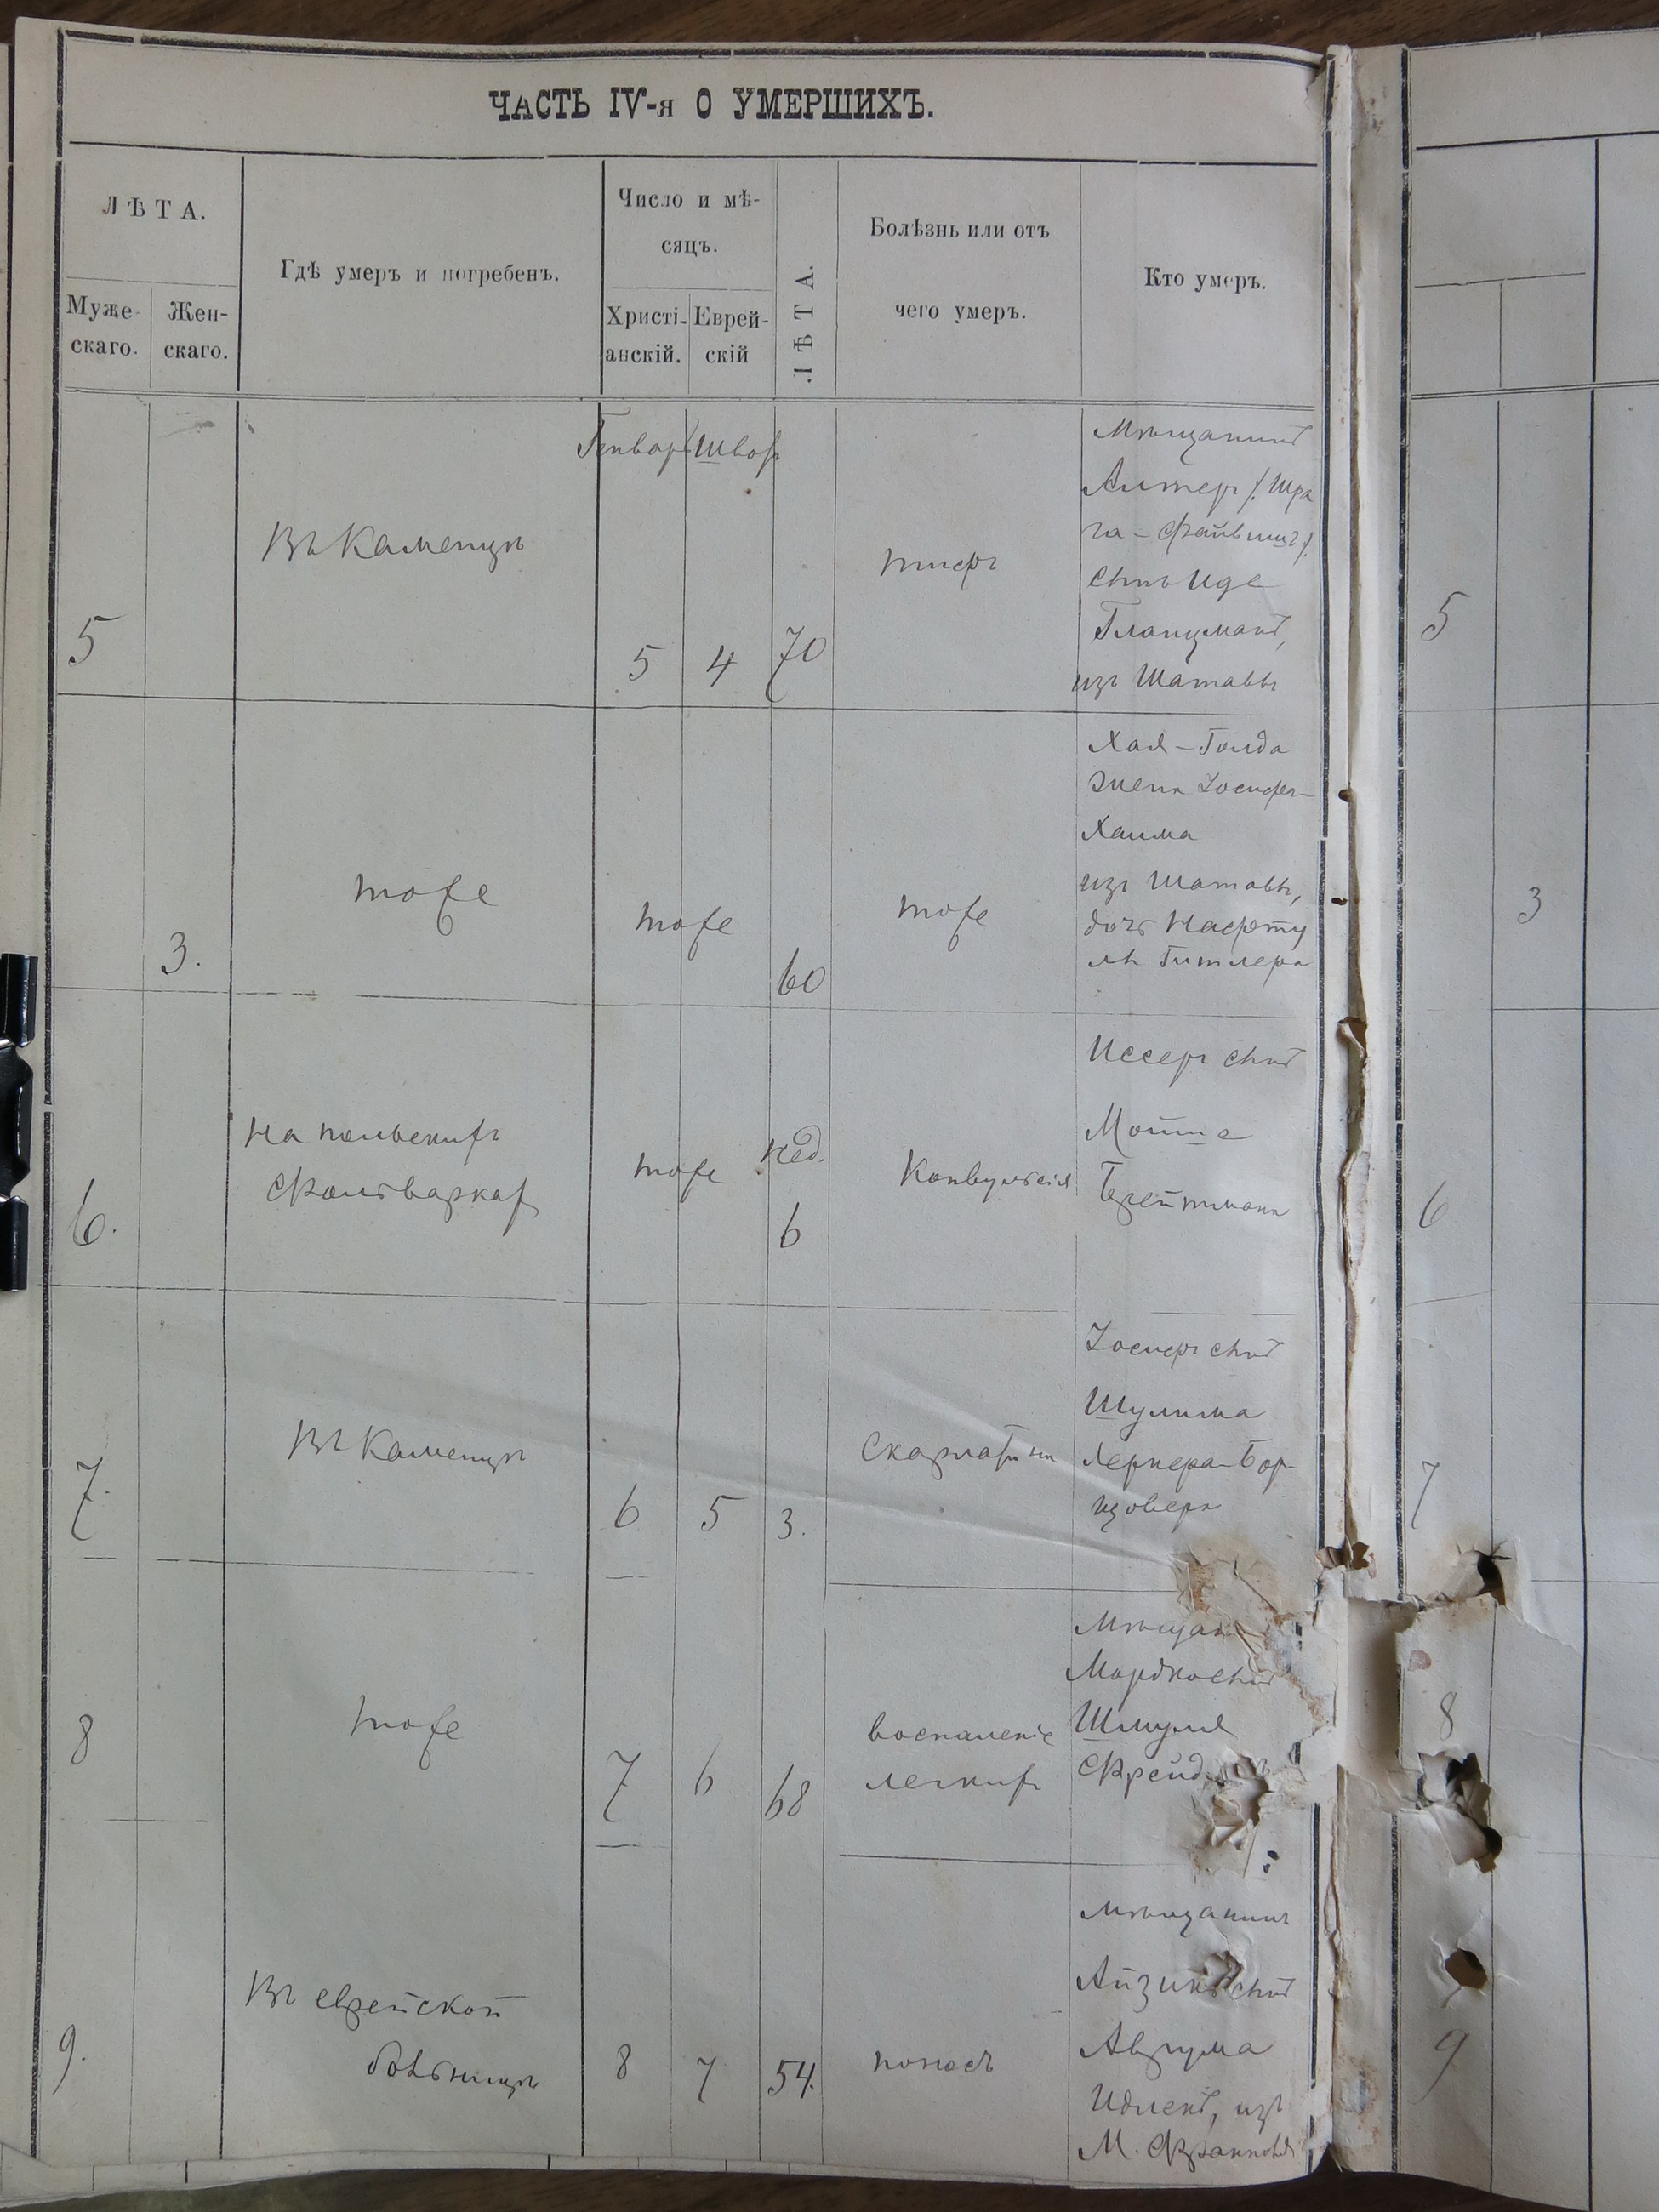 ЧАСТЬ IV-я О УМЕРШИХЪ.
ЛѢТА.
Муже-
скаго.
Жен-
скаго.
Гдѣ умеръ и погребенъ.
Число и мѣ-
сяцъ.
Христі-
анскій.
Еврей-
скій
ЛѢТА.
Болѣзнь или отъ
чего умеръ.
Кто умеръ.
Генварь Шват
5
Въ Каменцѣ
5
4
70
тифъ
Мѣщанинъ
Алтеръ /: Шра
га-Файвишъ :/
сынъ Иде
Гланцманъ,
изъ Шатавы
5
3.
тоже
тоже
60
тоже
Хая-Голда
жена Іосифа-
Хаима
изъ Шатавы,
дочь Нафту
лы Гитлера
3
6.
На польскихъ
фольваркахъ
тоже
нед.
6
Конвульсія
Иссеръ сынъ
Мошше
Брейтмана
6
7.
Въ Каменцѣ
6
5
3.
Скарлатина
Іосифъ сынъ
Шулима
Лернера-Бор-
щовера
7
8
тоже
7
6
68
воспаленіе
легкихъ
Мордко сынъ
Шмуля
8
9.
Въ еврейской
больницѣ
8
7
54.
поносъ
мѣщанинъ
Айзикъ сынъ
Аврума
Идлекъ, изъ
М. Франковъ
9